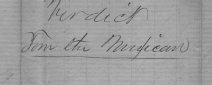 Verdict
Tom the Mexican